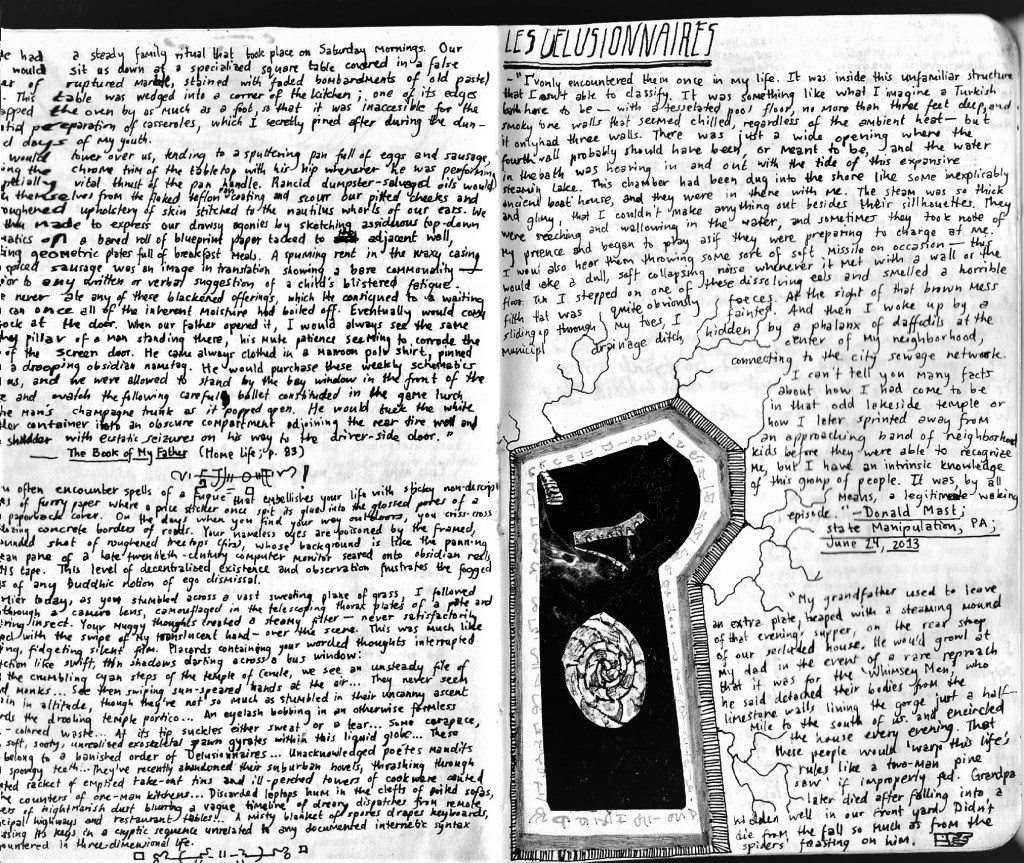 had a steady family ritual that took place on Saturday mornings. Our
would sit us down at a specialized square table covered in a false
of ruptured marble, stained with faded bombardments of old paste)
This table was wedged into a corner of the kitchen; one of its edges
the oven by as much as a foot, so that it was inaccesible for the
preparation of casseroles, which I secretly pined after during the dun-
days of my youth.
would tower over us, tending to a sputtering pan full of eggs and sausage,
the chrome trim of the tabletop with his hip whenever he was performing
vital thrust of the pan handle. Rancid dumpster-salvaged oils would
themselves from the flaked teflon coating and scour our pitted cheeks and
upholstery of skin stitched to the nautilus whorls of our ears. We
made to express our drowsy agonies by sketching assiduous top-down
on a bared roll of blueprint paper tacked to adjacent wall,
geometric plates full of breakfast meals. A spuming rent in the waxy casing
spiced sausage was an image in translation showing a bare commonality
to any written or verbal suggestion of a child's blistered fatigue.
never ate any of these blackened offerings, which he consigned to a waiting
can once all of the inherent moisture had boiled off. Eventually would come
at the door. When our father opened it, I would always see the same
pillar of a man standing there, his mute patience seeming to corrode the
of the screen door. He came always clothed in a maroon polo shirt, pinned
a drooping obsidian nametag. He would purchase these weekly schematics
us, and we were allowed to stand by the bay window in the front of the
and watch the following careful ballet constituted in the game lurch
the man's champagne trunk as it popped open. He would tuck the white
container into an obscure compartment adjoining the rear tire well and
shudder with ecstatic seizures on his way to the driver-side door."
— The Book of My Father (Home life; p. 83)
often encounter spells of a fugue that embellishes your life with sticky non-descript
of furry paper where a price sticker once spit its glued into the glossed pores of a
paperback cover. On the days when you find your way outdoors, you criss-cross
concrete borders of roads. Your nameless eyes are poisoned by the framed,
shot of roughened treetops (firs), whose background is like the panning
pane of a late twentieth-century computer monitor seared onto obsidian reels
tape. This level of decentralized existence and observation frustrates the fogged
of any Buddhic notion of ego dismissal.
earlier today, as you stumbled across a vast sweating plane of grass, I followed
through a camera lens, camouflaged in the telescoping thorax plates of a pale and
insect. Your muggy thoughts created a steamy filter — never satisfactorily
with the swipe of my translucent hand — over the scene. This was much like
fidgeting silent film. Placards containing your worded thoughts interrupted
like swift, thin shadows darting across a bus window:
the crumbling cyan steps of the temple of cerule, we see an unsteady file of
monks... See them swiping sun-speared hands at the air... They never seem
in altitude, though they're not so much as stumbled in their uncanny ascent
the drooling temple portico... An eyelash bobbing in an otherwise formless
-colored waste... At its tip suckles either sweat or a tear... Some carapace,
soft, sooty, unrealised exoskeletal spawn gyrates within this liquid globe... These
belong to a banished order of Delusionnaires... Unacknowledged poetes maudits
spongy teeth... They've recently abandoned their suburban hovels, thrashing through
racket of emptied take-out tins and ill-perched towers of cookware
the counters of one-man kitchens... Discarded laptops hum in the clefts of soiled sofas,
of nightmarish dust blurring a vague timeline of dreary dispatches from remote
highways and restaurant tables... A misty blanket of spores drapes keyboards,
its keys in a cryptic sequence unrelated to any documented internetic syntax
encountered in three-dimensional life.
LES DELUSIONNAIRES
— "I've only encountered them once in my life. It was inside this unfamiliar structure
that I wasn't able to classify. It was something like what I imagine a Turkish
bath house to be — with a tesselated pool floor, no more than three feet deep, and
smoky tone walls that seemed chilled, regardless of the ambient heat — but
it only had three walls. There was just a wide opening where the
fourth wall probably should have been or meant to be, and the water
in the bath was hearing in and out with the tide of this expansive
steamin lake. This chamber had been dug into the shore like some inexplicably
ancient boat house, and they were in there with me. The steam was so thick
and glimy, that I couldn't make anything out besides their sillhouettes. They
were reeching and wallowing in the water, and sometimes they took note of
my prience and began to play as if they were preparing to charge at me.
I wow also hear them throwing some sort of soft missile on occasion — this
would make a dull, soft collapsing noise whenever it met with a wall or the
floor. Tun I stepped on one of these dissolving eels and smelled a horrible
filth tat was quite obviously feoces. At the sight of that brown mess
sliding up through my toes, I fainted. And then I woke up by a
municipl drainage ditch, hidden by a phalanx of daffodils at the
center of my neighborhood,
connecting to the city sewage network.
I can't tell you many facts
about how I had come to be
in that odd lakeside temple or
how I later sprinted away from
an approaching band of neighborhood
kids before they were able to recognize
me, but I have an intrinsic knowledge
of this group of people. It was, by all
means, a legitimate waking
episode." — Donald Mast;
state Manipulation, PA;
June 24, 2013
"My grandfather used to leave
an extra plate, heaped with a steaming mound
of that evening's supper, on the rear stoop
of our secluded house. He would growl at
my dad in the event of a rare reproach
that it was for the 'Whimsen Men,' who
he said detached their bodies from the
limestone walls lining the gorge just a half-
mile to the south of us and encircled
the house every evening. That
these people would 'warp this life's
rules like a two-man pine
saw' if improperly fed. Grandpa
later died after falling into a
hidden well in our front yard. Didn't
die from the fall so much as from the
spiders feasting on him.